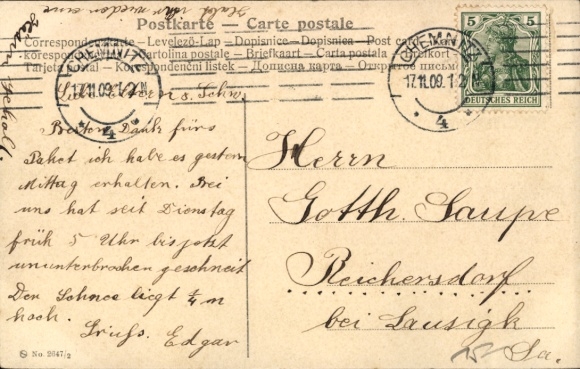 Postkarte – Carte postale
Correspondenzkarte – Levelező-Lap – Dopisnice – Dopisnica – Post card
korespondencyjna – Cartolina postale – Briefkaart – Carta postala –
Tarjeta – Korespondenční lístek – Дописна карта – Открытое письмо
CHEMNITZ
17.11.09.
* 4 *
CHEMNITZ
17.11.09.
* 4 *
5 5
DEUTSCHES REICH
Besten Dank fürs
Paket ich habe es gestern
Mittag erhalten. Bei
uns hat seit Dienstag
früh 5 Uhr bis jetzt
ununterbrochen geschneit
Der Schnee liegt ¼ m
hoch.
Gruss. Edgar
Herrn
Gotth. Saupe
Reichersdorf
bei Lausigk
Sa.
No. 2647/2